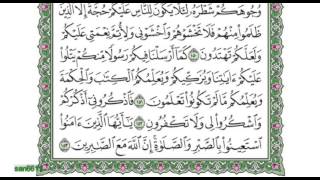 وُجُوهَكُمْ شَطْرَهُۥ لِئَلَّا يَكُونَ لِلنَّاسِ عَلَيْكُمْ حُجَّةٌ إِلَّا ٱلَّذِينَ
ظَلَمُوا۟ مِنْهُمْ فَلَا تَخْشَوْهُمْ وَٱخْشَوْنِى وَلِأُتِمَّ نِعْمَتِى عَلَيْكُمْ
وَلَعَلَّكُمْ تَهْتَدُونَ ١٥٠ كَمَآ أَرْسَلْنَا فِيكُمْ رَسُولًا مِّنكُمْ يَتْلُوا۟
عَلَيْكُمْ ءَايَٰتِنَا وَيُزَكِّيكُمْ وَيُعَلِّمُكُمُ ٱلْكِتَٰبَ وَٱلْحِكْمَةَ
وَيُعَلِّمُكُم مَّا لَمْ تَكُونُوا۟ تَعْلَمُونَ ١٥١ فَٱذْكُرُونِىٓ أَذْكُرْكُمْ
وَٱشْكُرُوا۟ لِى وَلَا تَكْفُرُونِ ١٥٢ يَٰٓأَيُّهَا ٱلَّذِينَ ءَامَنُوا۟
ٱسْتَعِينُوا۟ بِٱلصَّبْرِ وَٱلصَّلَوٰةِ إِنَّ ٱللَّهَ مَعَ ٱلصَّٰبِرِينَ ١٥٣